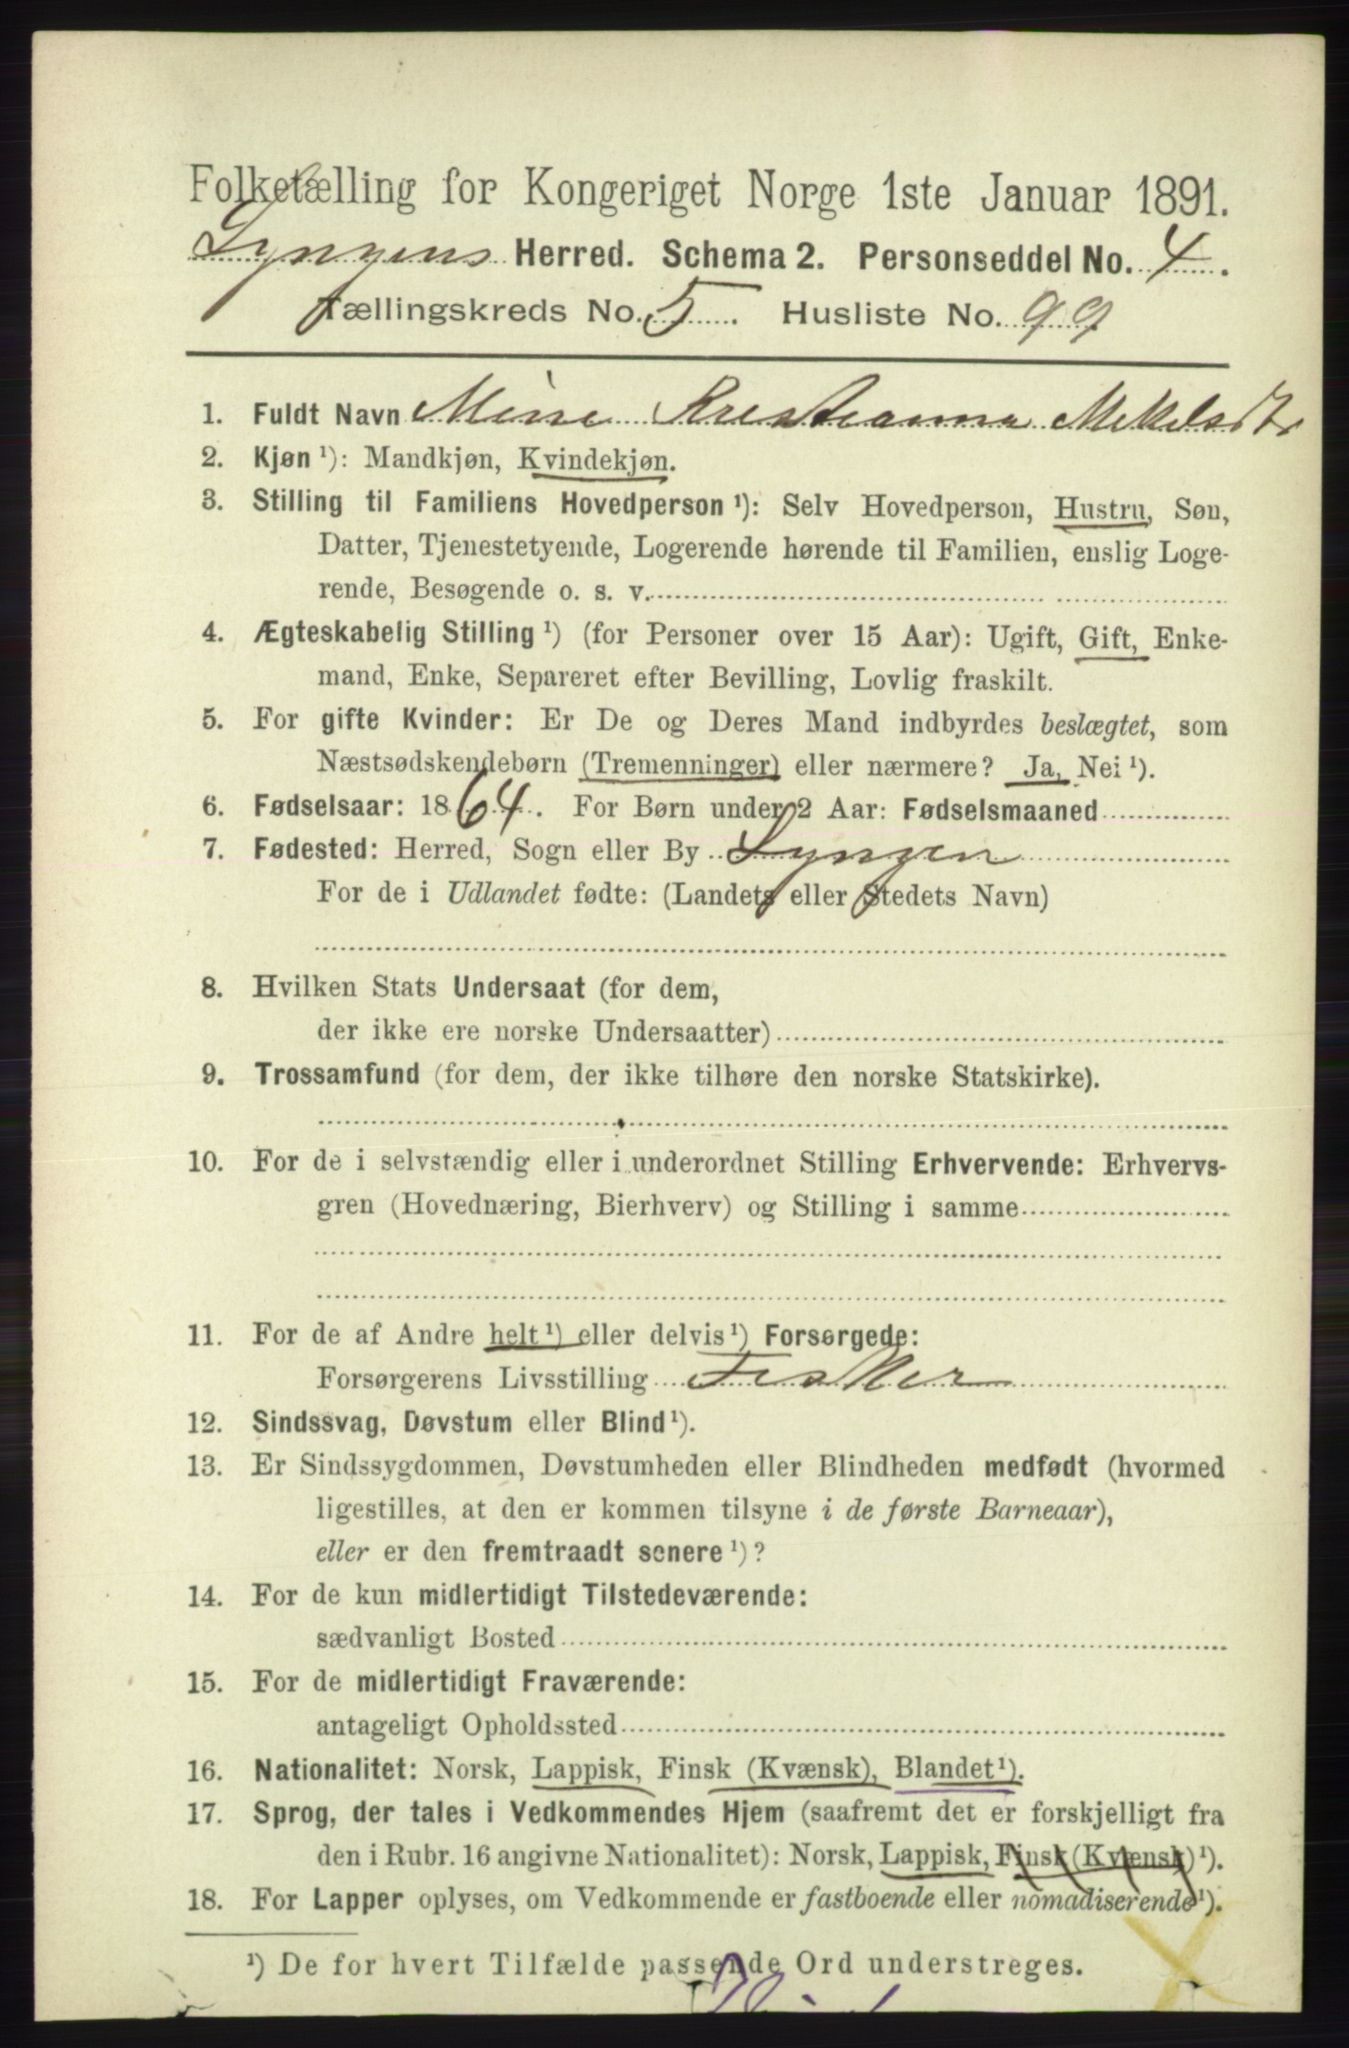 Folketælling for Kongeriget Norge 1ste Januar 1891.
Lyngens Herred. Schema 2. Personseddel No. 4.
Tællingskreds No. 5. Husliste No. 99
1. Fuldt Navn Mine Kristianna Mikelsdtr
2. Kjøn ¹): Mandkjøn, Kvindekjøn.
3. Stilling til Familiens Hovedperson ¹): Selv Hovedperson, Hustru, Søn,
Datter, Tjenestetyende, Logerende hørende til Familien, enslig Loge-
rende, Besøgende o. s. v.
4. Ægteskabelig Stilling ¹) (for Personer over 15 Aar): Ugift, Gift, Enke-
mand, Enke, Separeret efter Bevilling, Lovlig fraskilt.
5. For gifte Kvinder: Er De og Deres Mand indbyrdes beslægtet, som
Næstsødskendebørn (Tremenninger) eller nærmere? Ja, Nei ¹).
6. Fødselsaar: 1864. For Børn under 2 Aar: Fødselsmaaned
7. Fødested: Herred, Sogn eller By Lyngen
For de i Udlandet fødte: (Landets eller Stedets Navn)
8. Hvilken Stats Undersaat (for dem,
der ikke ere norske Undersaatter)
9. Trossamfund (for dem, der ikke tilhøre den norske Statskirke).
10. For de i selvstændig eller i underordnet Stilling Erhvervende: Erhvervs-
gren (Hovednæring, Bierhverv) og Stilling i samme
11. For de af Andre helt ¹) eller delvis ¹) Forsørgede:
Forsørgerens Livsstilling Fisker
12. Sindssvag, Døvstum eller Blind ¹).
13. Er Sindssygdommen, Døvstumheden eller Blindheden medfødt (hvormed
ligestilles, at den er kommen tilsyne i de første Barneaar),
eller er den fremtraadt senere ¹)?
14. For de kun midlertidigt Tilstedeværende:
sædvanligt Bosted
15. For de midlertidigt Fraværende:
antageligt Opholdssted
16. Nationalitet: Norsk, Lappisk, Finsk (Kvænsk), Blandet ¹).
17. Sprog, der tales i Vedkommendes Hjem (saafremt det er forskjelligt fra
den i Rubr. 16 angivne Nationalitet): Norsk, Lappisk, Finsk (Kvænsk) ¹).
18. For Lapper oplyses, om Vedkommende er fastboende eller nomadiserende ¹).
¹) De for hvert Tilfælde passende Ord understreges.